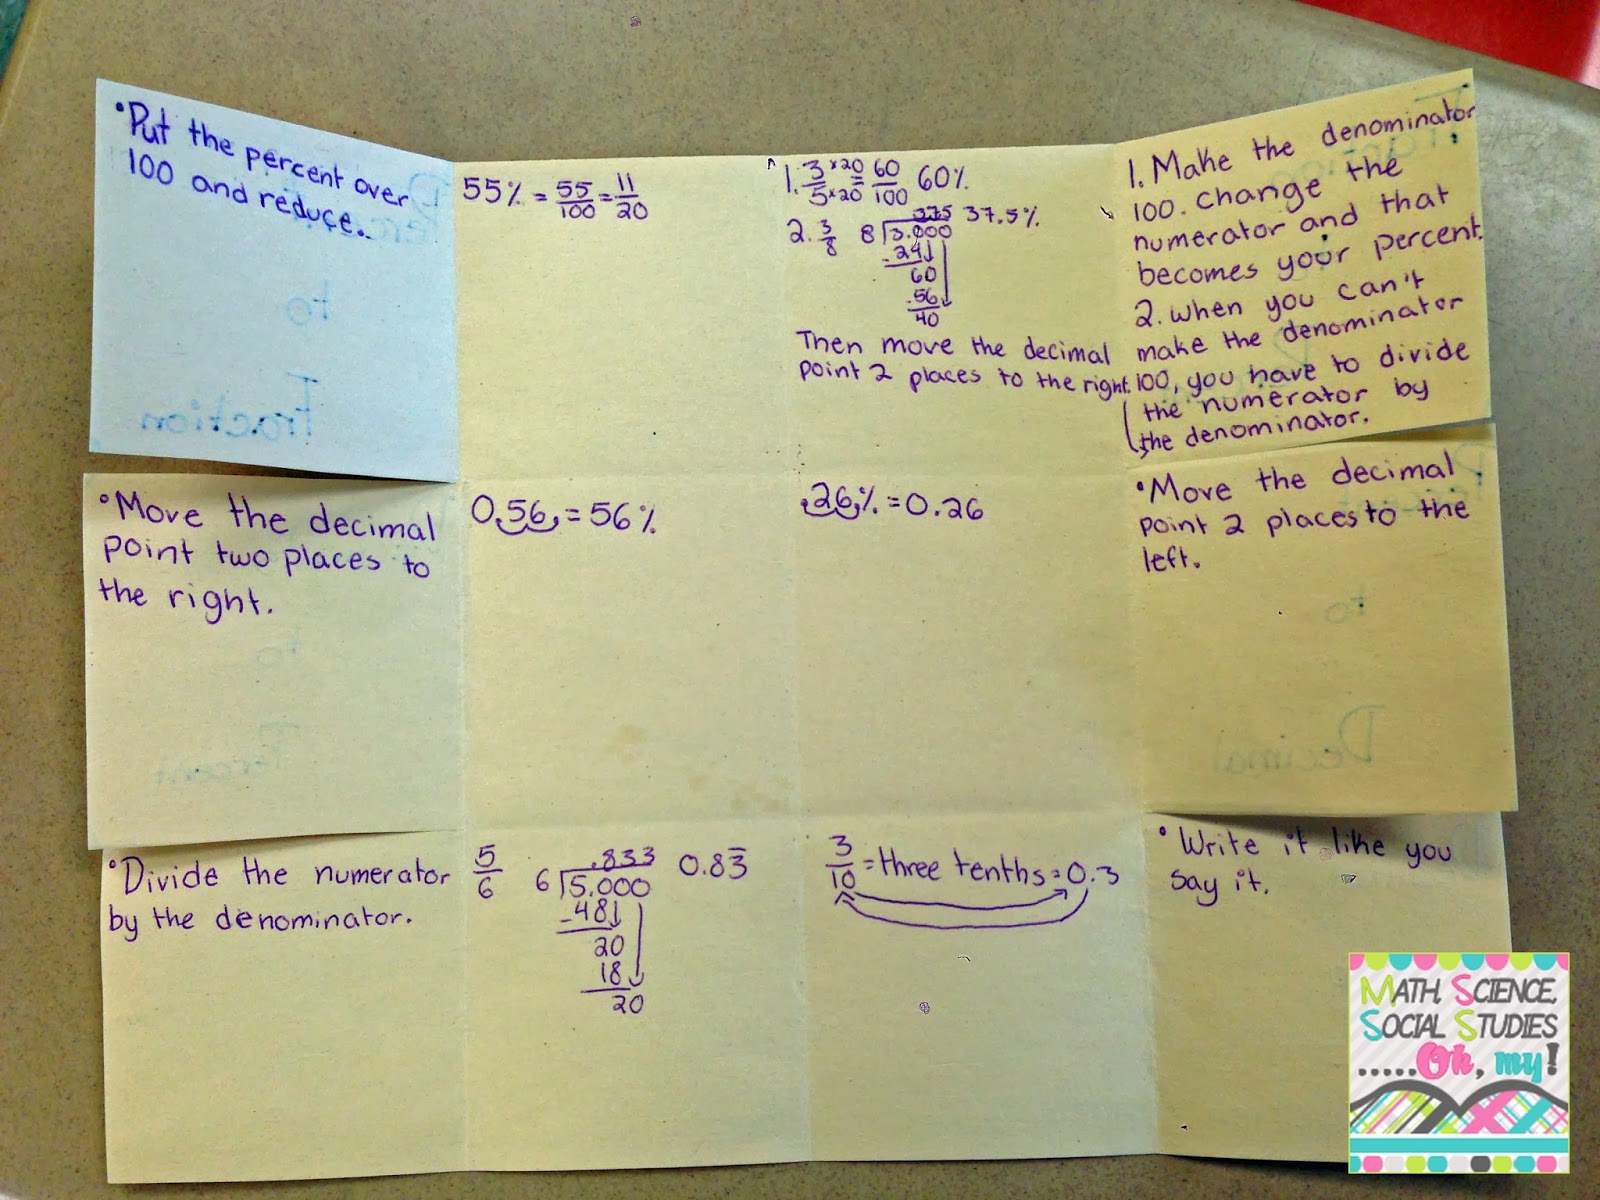 •Put the percent over
100 and reduce.
55% = 55/100 = 11/20
1. 3/5 ×20/×20 = 60/100 60%
2. 3/8 8)3.000 .375 37.5%
-24
60
-56
40
Then move the decimal
point 2 places to the right.
1. Make the denominator
100. Change the
numerator and that
becomes your percent.
2. When you can't
make the denominator
100, you have to divide
the numerator by
the denominator.
•Move the decimal
point two places to
the right.
0.56 = 56%
.26% = 0.26
•Move the decimal
point 2 places to the
left.
•Divide the numerator
by the denominator.
5/6 6)5.000 .833 0.83̅
-48
20
18
20
3/10 = three tenths = 0.3
•Write it like you
say it.
to
Fraction
to
Percent
to
Decimal
MATH, SCIENCE,
SOCIAL STUDIES
.....Oh, my!